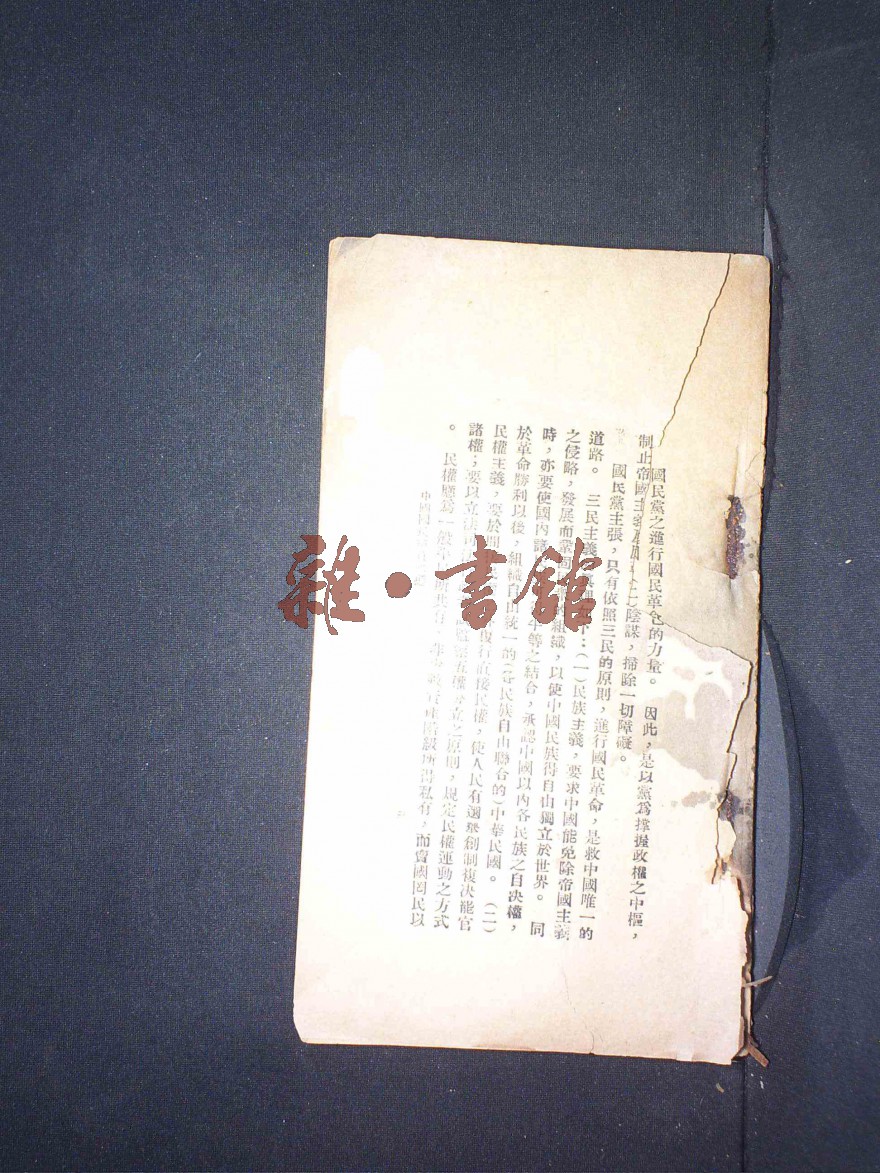 國民黨之進行國民革命的力量。 因此，是以黨爲掌握政權之中樞，
制止帝國主義 陰謀，掃除一切障礙。
國民黨主張，只有依照三民的原則，進行國民革命，是救中國唯一的
道路。 三民主義 如下：(一)民族主義，要求中國能免除帝國主義
之侵略，發展而鞏固 組織，以使中國民族得自由獨立於世界。 同
時，亦要使國內諸 平等之結合，承認中國以內各民族之自決權，
於革命勝利以後，組織自由統一的(各民族自由聯合的)中華民國。 (二)
民權主義，要於間 復行直接民權，使人民有選舉創制複決罷官
諸權；要以立法司 監察五權分立之原則，規定民權運動之方式
。 民權應爲一般平 所共有， 階級所得私有，而賣國罔民以
中國國民
雜·書館